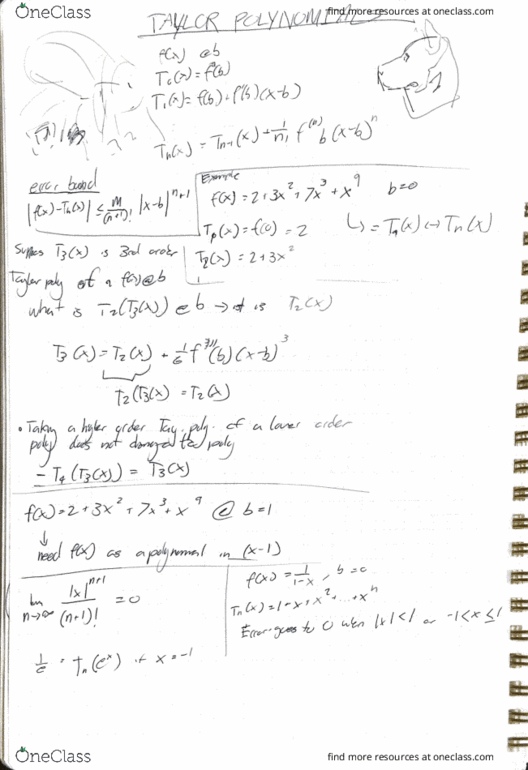 OneClass
find more resources at oneclass.com
TAYLOR POLYNOMIALS
f(x) @b
T₀(x) = f(b)
T₁(x) = f(b) + f'(b)(x-b)
Tn(x) = Tn-1(x) + 1/n! f^(n) b (x-b)^n
error bound
|f(x)-Tn(x)| ≤ M/(n+1)! |x-b|^(n+1)
Example
f(x) = 2+3x²+7x³+x⁹ b=0
T₀(x) = f(0) = 2
T₂(x) = 2+3x²
↳ = T₉(x) ↔ Tn(x)
T₃(x) is 3rd order
Taylor poly of a f(x)@b
what is T₂(T₃(x)) @ b → it is T₂(x)
T₃(x) = T₂(x) + 1/6 f'''(b)(x-b)³
T₂(T₃(x)) = T₂(x)
• Taking a higher order Tay. poly. of a lower order
poly does not change the poly
- T₄(T₃(x)) = T₃(x)
f(x) = 2+3x²+7x³+x⁹ @ b=1
↓
need f(x) as a polynomial in (x-1)
lim n→∞ |x|^(n+1)/(n+1)! = 0
1/e = Tn(e^x) if x=-1
f(x) = 1/(1-x), b=0
Tn(x) = 1+x+x²+...+x^n
Error goes to 0 when |x|<1 or -1<x≤1
OneClass
find more resources at oneclass.com